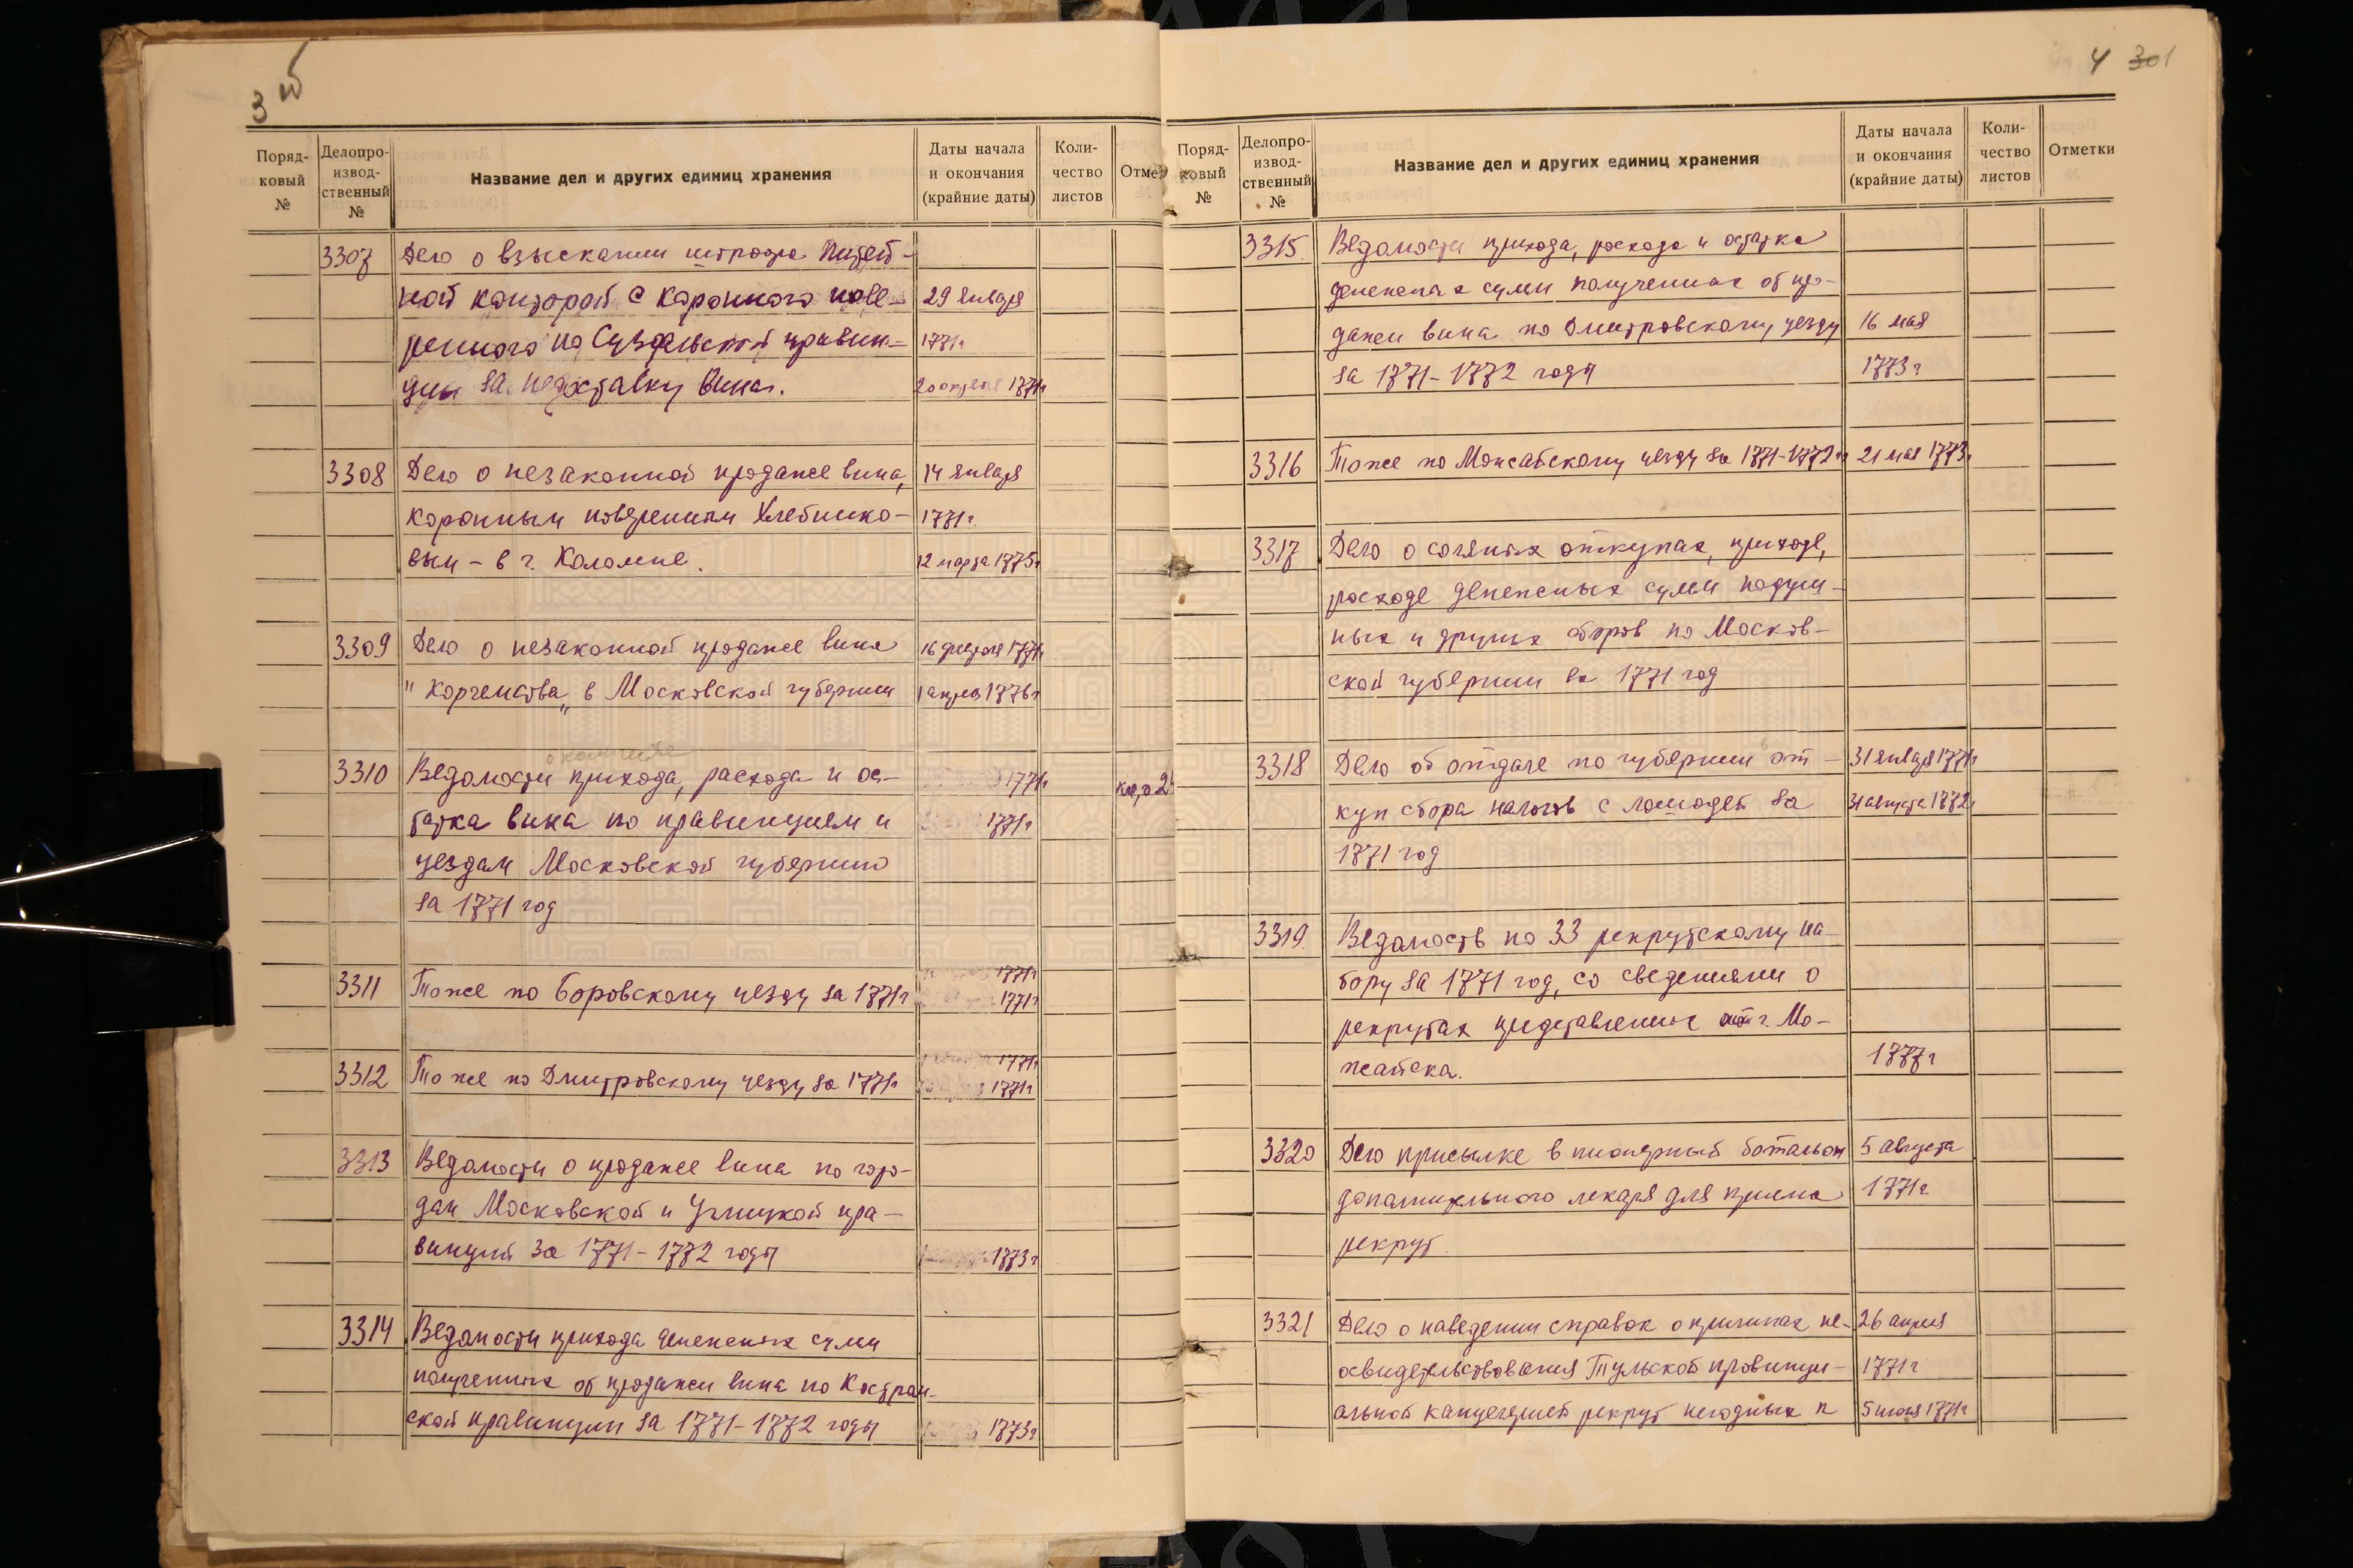 3 об
Поряд-
ковый
№
Делопро-
извод-
ственный
№
Название дел и других единиц хранения
Даты начала
и окончания
(крайние даты)
Коли-
чество
листов
Отме
3307 Дело о взыскании штрафа Питей-
ной конторой с коронного пове- 29 января
ренного по Суздальской правин- 1771г
ции за недоставку вина. 20 апреля 1771г
3308 Дело о незаконной продаже вина, 14 января
коронным поверенным Хлебнико- 1771г.
вым - в г. Коломне. 12 марта 1775г
3309 Дело о незаконной продаже вина 16 февраля 1771г
"Корчемства" в Московской губернии 1 апреля 1776г
о количестве
3310 Ведомости прихода, расхода и ос- 1771г
татка вина по правинциям и 1771г
уездам Московской губернию
за 1771 год
3311 То же по Боровскому уезду за 1771г 1771г
1771г
3312 То же по Дмитровскому уезду за 1771г 1771г
1771г
3313 Ведомости о продаже вина по горо-
дам Московской и Углицкой пра-
винций за 1771-1772 годы 1773г
3314 Ведомости прихода денежных сумм
полученных от продажи вина по Костром-
ской правинции за 1771-1772 годы 1773г
4 301
Поряд-
ковый
№
Делопро-
извод-
ственный
№
Название дел и других единиц хранения
Даты начала
и окончания
(крайние даты)
Коли-
чество
листов
Отметки
3315. Ведомости прихода, расхода и остатка
денежных сумм полученных от про-
дажи вина по Дмитровскому уезду 16 мая
за 1771-1772 года 1773г
3316 То же по Можайскому уезду за 1771-1772гг 21 мая 1773г
3317 Дело о соляных откупах, приходе,
расходе денежных сумм подуш-
ных и других сборов по Москов-
ской губернии за 1771 год
3318 Дело об отдаче по губернии в от- 31 января 1771г
куп сбора налогов с лошадей за 31 августа 1772г
1771 год
3319. Ведомость по 33 рекрутскому на-
бору за 1771 год, со сведениями о
рекрутах представленных от г. Мо-
жайска. 1777г
3320 Дело присылке в пионерный баталион 5 августа
дополнительного лекаря для приема 1771г
рекрут.
3321 Дело о наведении справок о причинах не- 26 апреля
освидетельствования Тульской провинци- 1771г
альной канцелярией рекрут негодных к 5 июля 1771г